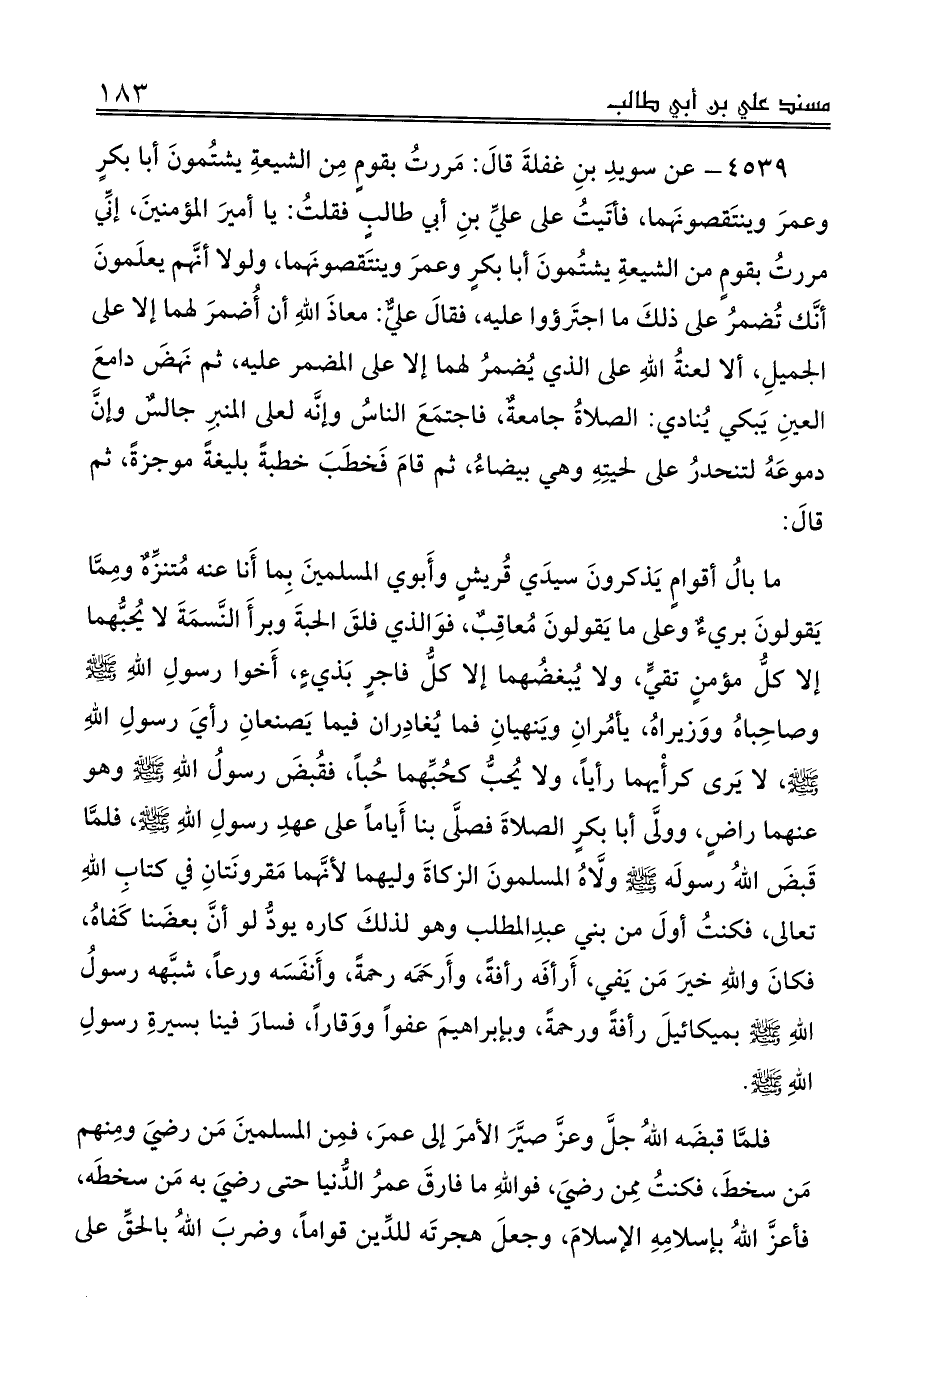 مسند علي بن أبي طالب ١٨٣
٤٥٣٩ – عن سويدِ بنِ غفلةَ قالَ: مَررتُ بقومٍ مِن الشيعةِ يشتُمونَ أبا بكرٍ
وعمرَ وينتَقصونَهما، فأتَيتُ على عليِّ بنِ أبي طالبٍ فقلتُ: يا أميرَ المؤمنينَ، إنِّي
مررتُ بقومٍ من الشيعةِ يشتُمونَ أبا بكرٍ وعمرَ وينتَقصونَهما، ولولا أنَّهم يعلَمونَ
أنَّك تُضمرُ على ذلكَ ما اجتَرؤوا عليه، فقالَ عليٌّ: معاذَ اللهِ أن أُضمرَ لهما إلا على
الجميلِ، ألا لعنةُ اللهِ على الذي يُضمرُ لهما إلا على المضمر عليه، ثم نهَضَ دامعَ
العينِ يَبكي يُنادي: الصلاةُ جامعةٌ، فاجتمَعَ الناسُ وإنَّه لعلى المنبرِ جالسٌ وإنَّ
دموعَهُ لتنحدرُ على لحيتِهِ وهي بيضاءُ، ثم قامَ فَخطَبَ خطبةً بليغةً موجزةً، ثم
قالَ:
ما بالُ أقوامٍ يَذكرونَ سيدَي قُريشٍ وأَبوي المسلمينَ بِما أَنا عنه مُتنزِّهٌ وممَّا
يَقولونَ بريءٌ وعلى ما يَقولونَ مُعاقِبٌ، فوَالذي فلقَ الحبةَ وبرأَ النَّسمَةَ لا يُحبُّهما
إلا كلُّ مؤمنٍ تقيٍّ، ولا يُبغضُهما إلا كلُّ فاجرٍ بَذيءٍ، أَخوا رسولِ اللهِ ﷺ
وصاحِباهُ ووَزيراهُ، يأمُرانِ ويَنهيانِ فما يُغادِران فيما يَصنعان رأيَ رسولِ اللهِ
ﷺ، لا يَرى كرأْيهما رأياً، ولا يُحبُّ كحُبِّهما حُباً، فقُبضَ رسولُ اللهِ ﷺ وهو
عنهما راضٍ، وولَّى أبا بكرٍ الصلاةَ فصلَّى بنا أَياماً على عهدِ رسولِ اللهِ ﷺ، فلمَّا
قَبضَ اللهُ رسولَه ﷺ ولَّاهُ المسلمونَ الزكاةَ وليهما لأنَّهما مَقرونَتانِ في كتابِ اللهِ
تعالى، فكنتُ أولَ من بني عبدِالمطلب وهو لذلكَ كاره يودُّ لو أنَّ بعضَنا كَفاهُ،
فكانَ واللهِ خيرَ مَن يَفي، أَرأفَه رأفةً، وأَرحَمَه رحمةً، وأَنفَسَه ورعاً، شبَّهه رسولُ
اللهِ ﷺ بميكائيلَ رأفةً ورحمةً، وبإبراهيمَ عفواً ووَقاراً، فسارَ فينا بسيرةِ رسولِ
اللهِ ﷺ.
فلمَّا قبضَه اللهُ جلَّ وعزَّ صيَّرَ الأمرَ إلى عمرَ، فمِن المسلمينَ مَن رضيَ ومِنهم
مَن سخطَ، فكنتُ ممن رضيَ، فواللهِ ما فارقَ عمرُ الدُّنيا حتى رضيَ به مَن سخطَه،
فأعزَّ اللهُ بإسلامِهِ الإسلامَ، وجعلَ هجرتَه للدِّين قواماً، وضربَ اللهُ بالحقِّ على